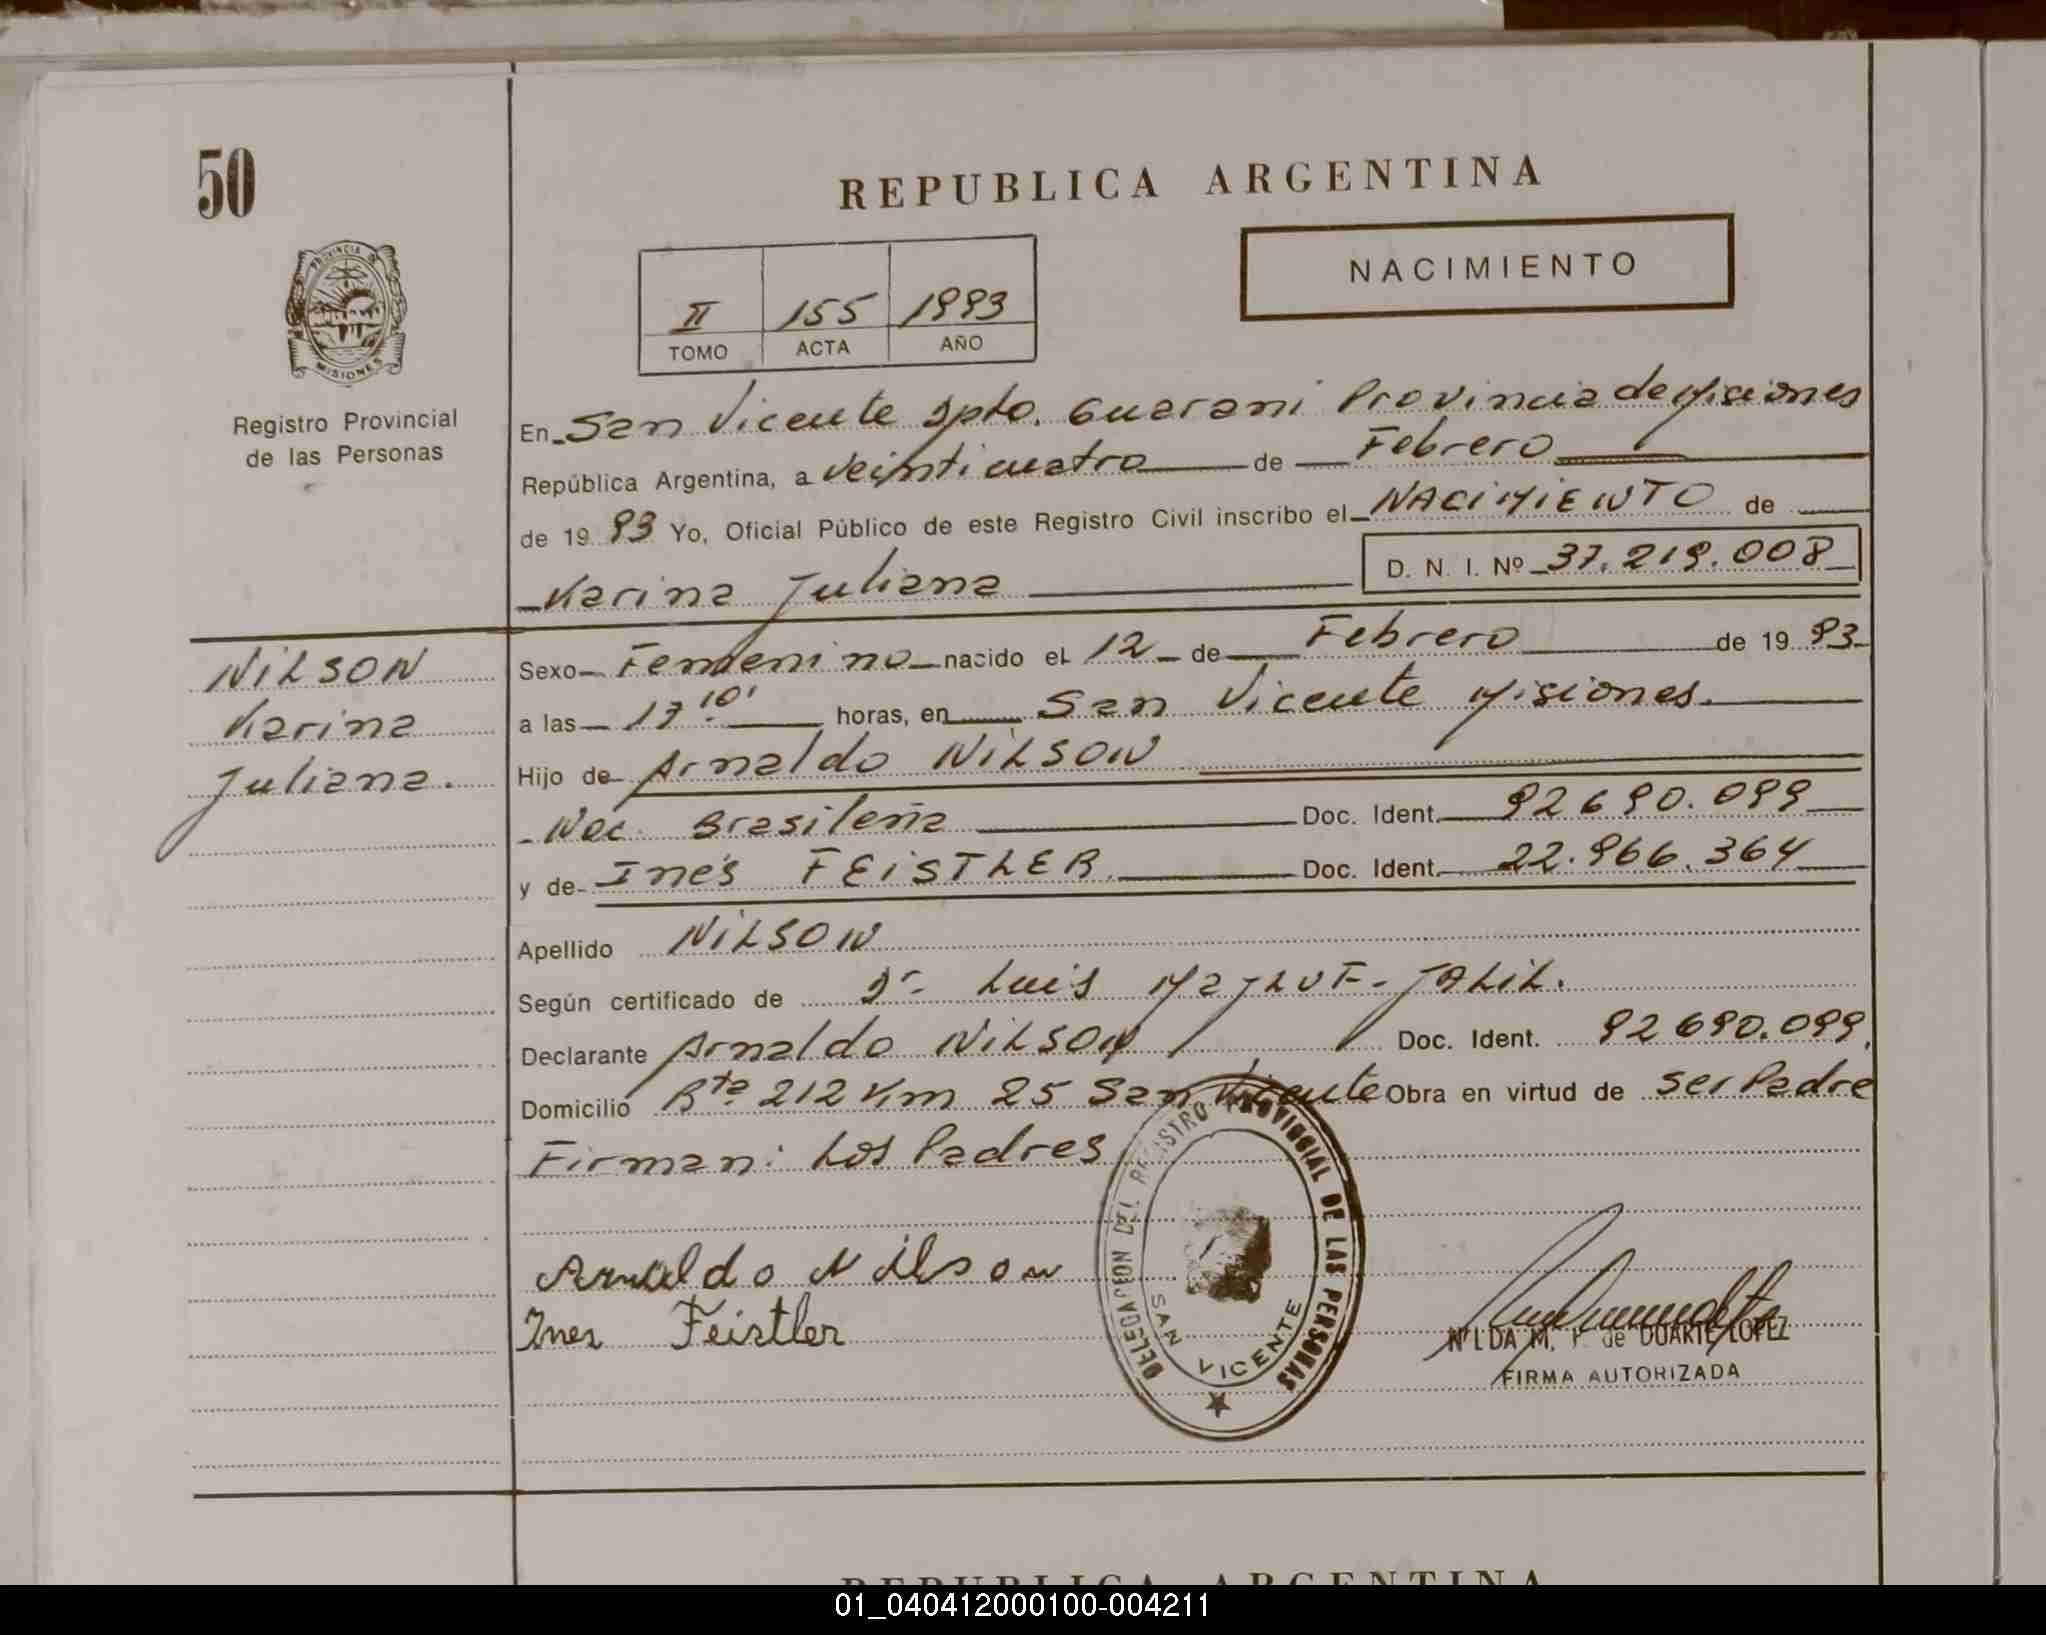 50
REPUBLICA ARGENTINA
NACIMIENTO
II 155 1993
TOMO ACTA AÑO
PROVINCIA DE MISIONES
Registro Provincial
de las Personas
En San Vicente Dpto. Guarani Provincia de Misiones
República Argentina, a veinticuatro de Febrero
de 19 93 Yo, Oficial Público de este Registro Civil inscribo el NACIMIENTO de
Karina Juliana D. N. I. Nº 37.219.008
NiLSON
Karina
Juliana.
Sexo Femenino nacido el 12 de Febrero de 19 93
a las 17 10' horas, en San Vicente Misiones.
Hijo de Arnaldo NiLSON
Nac. Brasileña Doc. Ident. 92690.099
y de Inés FEiSTLER. Doc. Ident. 22.966.364
Apellido NiLSON
Según certificado de Dr. Luis JALiL.
Declarante Arnaldo NiLSON Doc. Ident. 92690.099,
Domicilio Rta 212 Km 25 San Vicente Obra en virtud de ser Padre
Firman: Los Padres
Arnaldo Nilson
Ines Feistler
DELEGACION DEL REGISTRO PROVINCIAL DE LAS PERSONAS
SAN VICENTE
NILDA M. F. de DUARTE LOPEZ
FIRMA AUTORIZADA
REPUBLICA ARGENTINA
01_040412000100-004211